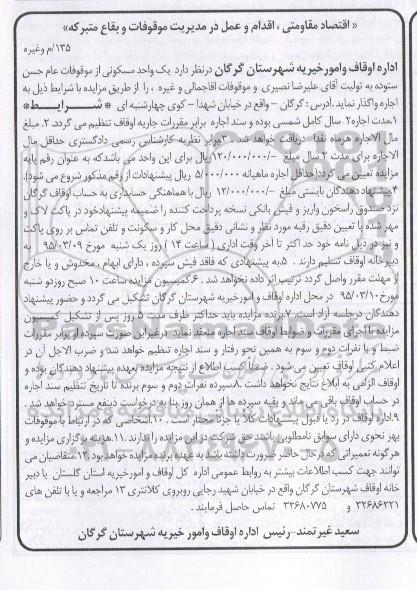 « اقتصاد مقاومتی ، اقدام و عمل در مدیریت موقوفات و بقاع متبرکه»
۱۳۵/م وغیره
اداره اوقاف وامورخیریه شهرستان گرگان درنظر دارد یک واحد مسکونی از موقوفات عام حسن
ستوده به تولیت آقای علیرضا نصیری و موقوفات آقاجمالی و غیره ، را از طریق مزایده با شرایط ذیل به
اجاره واگذار نماید .آدرس : گرگان – واقع در خیابان شهدا – کوی چهارشنبه ای *شرایط*
۱.مدت اجاره ۲ سال کامل شمسی بوده و سند اجاره برابر مقررات جاریه اوقاف تنظیم می گردد. ۲. مبلغ
مال الاجاره هرماه نقدا دریافت خواهد شد . ۳.برابر نظریه کارشناس رسمی دادگستری حداقل مال
الاجاره برای مدت ۲ سال مبلغ /۱۲۰/۰۰۰/۰۰۰ریال برای این واحد می باشدکه به عنوان رقم پایه
مزایده تعیین می گردد(حداقل اجاره ماهیانه ۵/۰۰۰/۰۰۰ ریال پیشنهادات از رقم مذکور شروع می شود).
۴.پیشنهاد دهندگان بایستی مبلغ /۱۲/۰۰۰/۰۰۰ ریال با هماهنگی حسابداری به حساب اوقاف گرگان
نزد صندوق راسخون واریز و فیش بانکی نسخه پرداخت کننده را ضمیمه پیشنهاد خود در پاکت لاک و
مهر شده با تعیین دقیق رقبه مورد نظر و نشانی دقیق محل کار و سکونت و تلفن تماس بر روی پاکت
و نیز در ذیل نامه خود حداکثر تا آخر وقت اداری ( ساعت ۱۴ ) روز یک شنبه مورخ ۹۵/۰۳/۰۹ به
دبیرخانه اوقاف تسلیم دارند . ۵.به پیشنهادی که فاقد فیش سپرده ، دارای ابهام ، مخدوش و یا خارج
از مهلت مقرر واصل گردد ترتیب اثر داده نخواهد شد . ۶.کمیسیون مزایده ساعت ۱۰ صبح روزدو شنبه
مورخ ۹۵/۰۳/۱۰ در محل اداره اوقاف و امورخیریه شهرستان گرگان تشکیل می گردد و حضور پیشنهاد
دهندگان درجلسه آزاد است. ۷.برنده مزایده باید حداکثر ظرف مدت ۵ روز پس از تشکیل کمیسیون
مزایده با اجرای مقررات و ضوابط اوقاف سند اجاره منعقد نماید درغیراین صورت سپرده او برابر مقررات
ضبط و با نفرات دوم و سوم به همین نحو رفتار و سند اجاره تنظیم خواهد شد و ضرب الاجل آن در
اعلام کتبی اوقاف تعیین می شود . ضمناً کسب اطلاع از نتیجه مزایده بعهده پیشنهاد دهندگان بوده و
اوقاف الزامی به ابلاغ نتایج نخواهد داشت .۸.سپرده نفرات دوم و سوم برنده تا تاریخ تنظیم سند اجاره
در حساب اوقاف باقی می ماند و بقیه سپرده ها از همان روز بنا به درخواست ذینفع مسترد خواهد شد .
۹.اداره اوقاف در رد یا قبول پیشنهادات کلا یا جزئا مختار است . ۱۰.اشخاصی که در ارتباط با موقوفات
بهر نحوی دارای سوابق نامطلوبی باشند حق شرکت در این مزایده را ندارند .۱۱.هزینه برگزاری مزایده و
هر گونه تعمیراتی که درحال حاضر ضرورت داشته باشد به عهده برنده مزایده خواهد بود.۱۲.متقاضیان می
توانند جهت کسب اطلاعات بیشتر به روابط عمومی اداره کل اوقاف و امورخیریه استان گلستان یا دبیر
خانه اوقاف شهرستان گرگان واقع در خیابان شهید رجایی روبروی کلانتری ۱۳ مراجعه و یا با تلفن های
۳۲۶۸۶۲۲۱ و ۳۲۶۸۰۷۷۵ تماس حاصل فرمایند .
سعید غیرتمند-رئیس اداره اوقاف وامور خیریه شهرستان گرگان